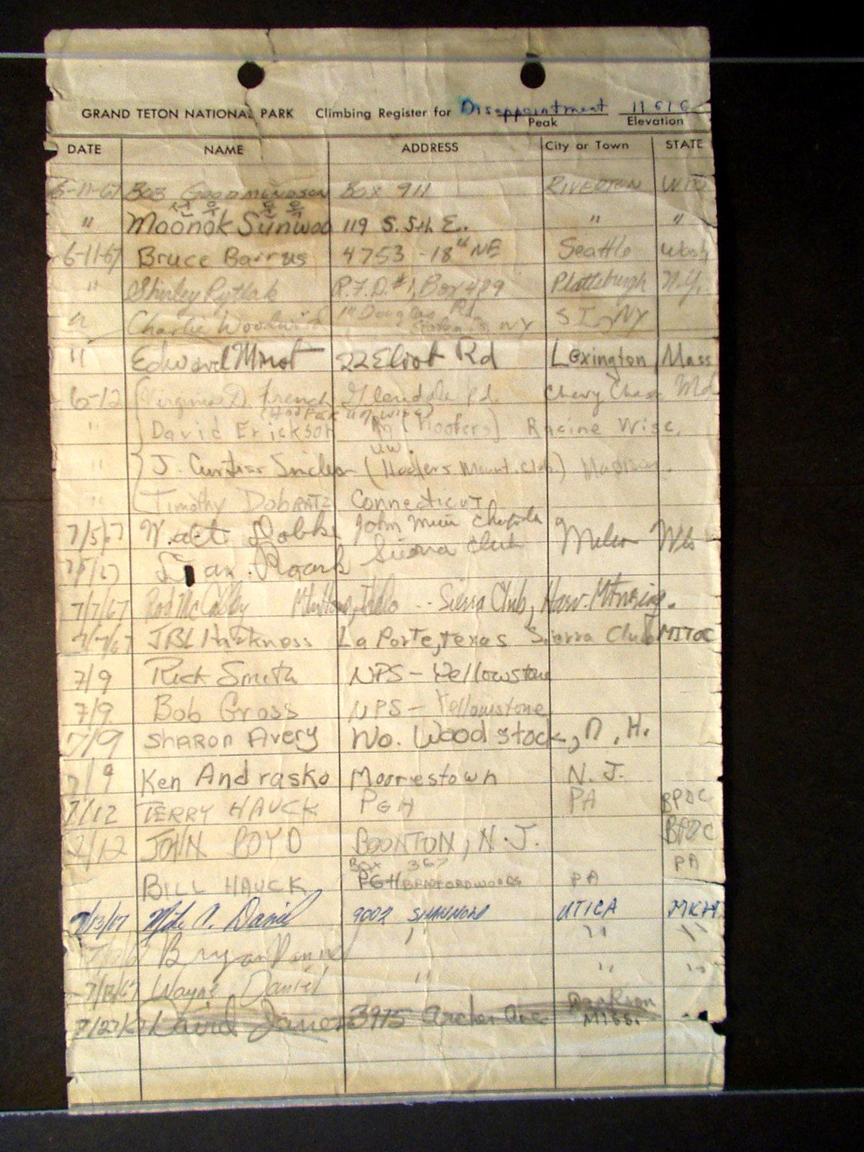 GRAND TETON NATIONAL PARK Climbing Register for Disappointment 11616
Peak Elevation
DATE NAME ADDRESS City or Town STATE
6-11-67 BOB GOODMUNDSON BOX 911 RIVERTON WYO
선우 문옥
" Moonok Sunwoo 119 S. 5th E. " "
6-11-67 Bruce Barrus 4753 - 18th NE Seattle Wash
" Shirley Rytlak R.F.D. #1, Box 489 Plattsburgh N.Y.
" Charlie Woodwird Douglas Rd. NY S I NY
11 Edward 22 Eliot Rd Lexington Mass
6-12 Virginia D. French Glendale Rd. Chevy Chase Md
" David Erickson (Hoofers) Racine Wisc.
U.W.
" J. Curtiss (Hoofers Mount. Club) Madison
" Timothy DobRATZ Connecticut
7/5/67 Walt John Muir Chapter
Sierra Club Wis
7/7/67 Rod McCalley Idaho -- Sierra Club, Harv. Mtnring.
7/7/67 JBL Harkness La Porte, Texas Sierra Club MITOC
7/9 Rick Smith NPS - Yellowstone
7/9 Bob Gross NPS - Yellowstone
7/9 Sharon Avery No. Woodstock, N.H.
7/9 Ken Andrasko Moorestown N.J.
7/12 TERRY HAUCK PGH PA BPOC
7/12 JOHN BOYD BOONTON, N.J. BPOC
BOX 367 PA
BILL HAUCK PGH BRADFORDWOODS PA
7/13/67 Mike A. Daniel 9002 UTICA MKH
Bryan Daniel " " "
7/13/67 Wayne Daniel " " "
7/27/67 Laird James 3975 Archer Ave Jackson
Miss.